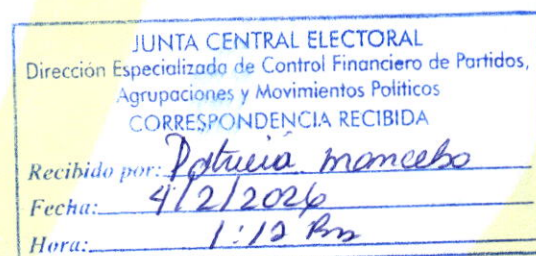 JUNTA CENTRAL ELECTORAL
Dirección Especializada de Control Financiero de Partidos,
Agrupaciones y Movimientos Politicos
CORRESPONDENCIA RECIBIDA
Recibido por: Patricia mancebo
Fecha: 4/2/2026
Hora: 1:12 Pm